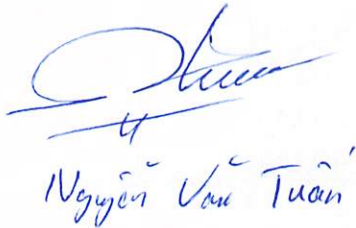 Nguyễn Văn Tuấn